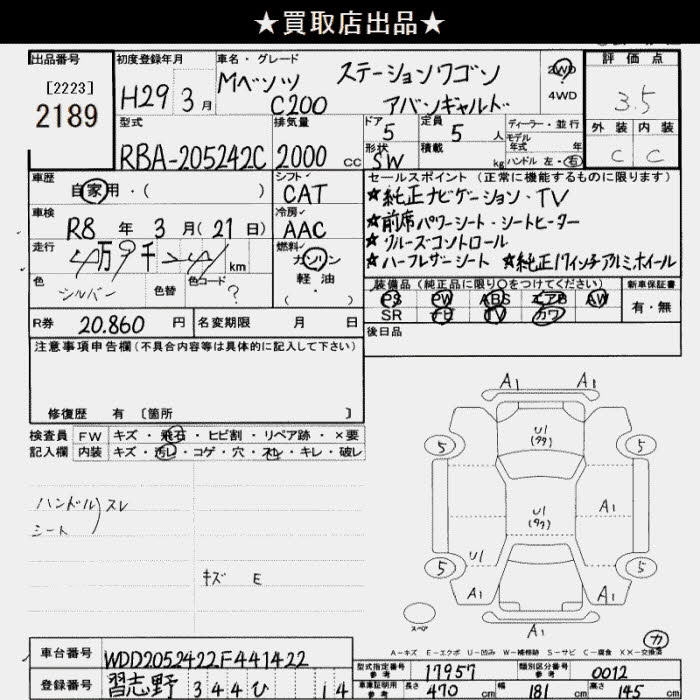 ★買取店出品★
出品番号
[2223]
2189
初度登録年月
H29 3月
車名・グレード
Mベンツ ステーションワゴン
C200 アバンギャルド
2WD
4WD
評価点
3.5
外装 内装
C C
型式
RBA-205242C
排気量
2000 cc
ドア 5
定員 5 人
ディーラー・並行
モデル年式 年
形状 SW
積載 kg
ハンドル 左・右
車歴
自家用・( )
シフト
CAT
セールスポイント (正常に機能するものに限ります)
★純正ナビゲーション・TV
★前席パワーシート・シートヒーター
★クルーズコントロール
★ハーフレザーシート ★純正17インチアルミホイール
車検
R8 年 3月(21日)
冷房
AAC
走行
km
燃料
ガソリン
軽油
( ・ )
色
シルバー
色替
色コード
?
装備品(純正品に限り○をつけてください)
新車保証書
PS PW ABS エアB AW
SR ナビ TV カワ
有・無
R券 20.860 円
名変期限 月 日
後日品
注意事項申告欄(不具合内容等は具体的に記入して下さい)
修復歴 有 [箇所 ]
検査員 FW キズ・飛石・ヒビ割・リペア跡・×要
記入欄 内装 キズ・汚レ・コゲ・穴・スレ・キレ・破レ
ハンドル
シート
スレ
キズ E
A1 A1
U1
(99)
5 5
U1
(99)
A1
U1
5 5
A1 A1
A1
スペア
カ
A-キズ E-エクボ U-凹み W-補修跡 S-サビ C-腐食 XX-交換済
車台番号 WDD2052422F441422
型式指定番号 参考 17957
類別区分番号 参考 0012
登録番号 習志野 344 ひ 14
車庫証明用 参考 長さ 470 cm 幅 181 cm 高さ 145 cm